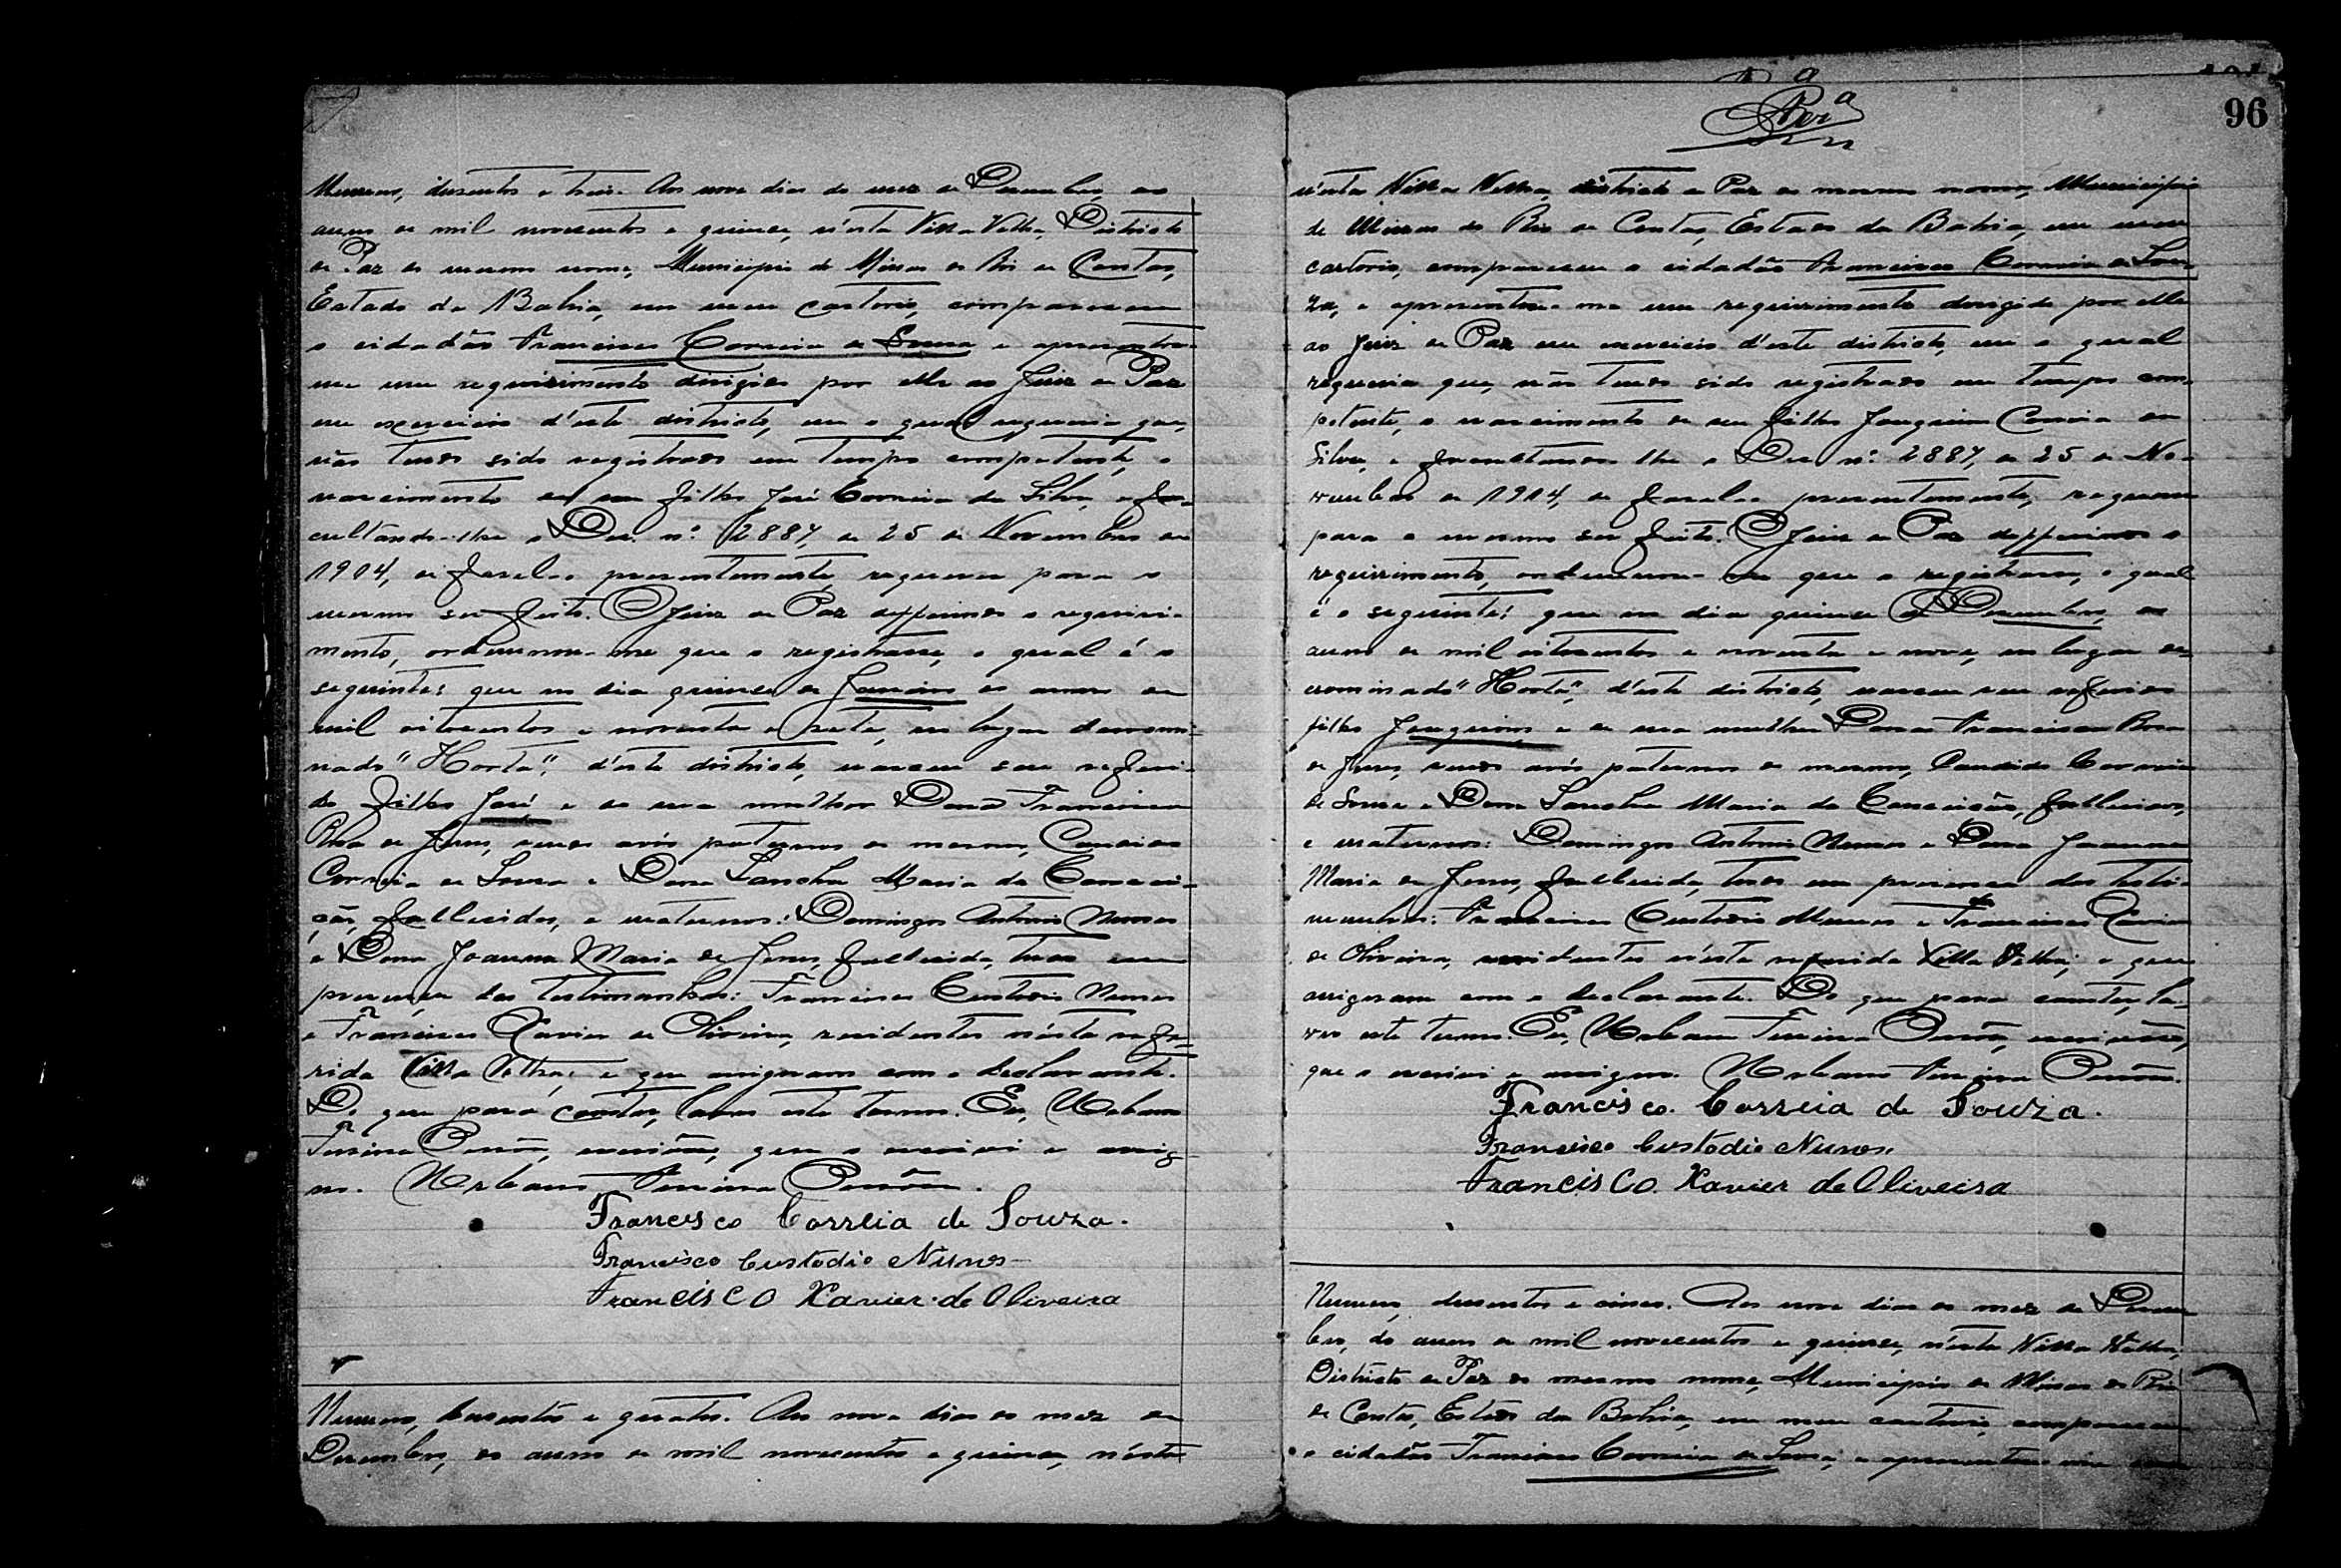 Numero, dusentos e tres. Aos nove dias do mez de Dezembro, do
anno de mil novecentos e quinze, n'esta Villa Velha, Districto
de Paz do mesmo nome, Municipio de Minas do Rio de Contas,
Estado da Bahia, em meu cartorio, compareceu
o cidadão Francisco Correia de Souza e apresentou-
me um requirimento dirigido por elle ao Juiz de Paz
em exercicio d'este districto, em o qual requeria que,
não tendo sido registrado em tempo competente, o
nascimento de seu filho José Correia da Silva, e fa-
cultando-lhe o Dec. nº 2887, de 25 de Novembro de
1914, de fazel-o presentemente, requerer para o
mesmo ser feito. O Juiz de Paz defferindo o requiri-
mento, ordenou-me que o registrasse, o qual é o
seguinte: que no dia quinze de Janeiro do anno de
mil oitocentos e noventa e sete, no lugar denomi-
nado "Horta", d'este districto, nasceu seu referi-
do filho José e de sua mulher Dona Francisca
Rosa de Jesus, sendo avós paternos do mesmo, Candido
Correia de Souza e Dona Sancha Maria da Concei-
ção, fallecidos, e maternos: Domingos Antonio Nunes
e Dona Joanna Maria de Jesus, fallecida, tudo em
presença das testimunhas: Francisco Custodio Nunes
e Francisco Xavier de Oliveira, residentes n'esta refe-
rida Villa Velha; e que assignaram com o declarante.
De que para constar, lavro este termo. Eu, Urbano
escrivão, que o escrevi e assig-
no. Urbano
Francisco Correia de Souza.
Francisco Custodio Nunes
Francisco Xavier de Oliveira
Numero, dusentos e quatro. Aos nove dias do mez de
Dezembro, do anno de mil novecentos e quinze, n'esta
96
n'esta Villa Velha, districto de Paz do mesmo nome, Municipio
de Minas do Rio de Contas, Estado da Bahia, em meu
cartorio, compareceu o cidadão Francisco Correia de Sou-
za, e apresentou-me um requirimento dirigido por elle
ao Juiz de Paz em exercicio d'este districto, em o qual
requeria que, não tendo sido registrado em tempo com-
petente, o nascimento de seu filho Joaquim Correia da
Silva, e facultando-lhe o Dec nº 2887, de 25 de No-
vembro de 1914, de fazel-o presentemente, requerer
para o mesmo ser feito. O Juiz de Paz defferindo o
requirimento, ordenou-me que o registrasse, o qual
é o seguinte: que no dia quinze de Dezembro, do
anno de mil oitocentos e noventa e nove, no lugar de-
nominado "Horta", d'este districto, nasceu seu referido
filho Joaquim e de sua mulher Dona Francisca Rosa
de Jesus, sendo avós paternos do mesmo, Candido Correia
de Souza e Dona Sancha Maria da Conceição, fallecidos,
e maternos: Domingos Antonio Nunes e Dona Joanna
Maria de Jesus, fallecida, tudo em presença das testi-
munhas: Francisco Custodio Nunes e Francisco Xavier
de Oliveira, residentes n'esta referida Villa Velha; e que
assignaram com o declarante. De que para constar, la-
vro este termo. Eu, Urbano escrivão,
que o escrevi e assigno. Urbano
Francisco Correia de Souza.
Francisco Custodio Nunes.
Francisco Xavier de Oliveira
Numero, dusentos e cinco. Aos nove dias do mez de Dezem-
bro, do anno de mil novecentos e quinze, n'esta Villa Velha,
Districto de Paz do mesmo nome, Municipio de Minas do Rio
de Contas, Estado da Bahia, em meu cartorio, compareceu
o cidadão Francisco Correia de Souza, e apresentou-me um